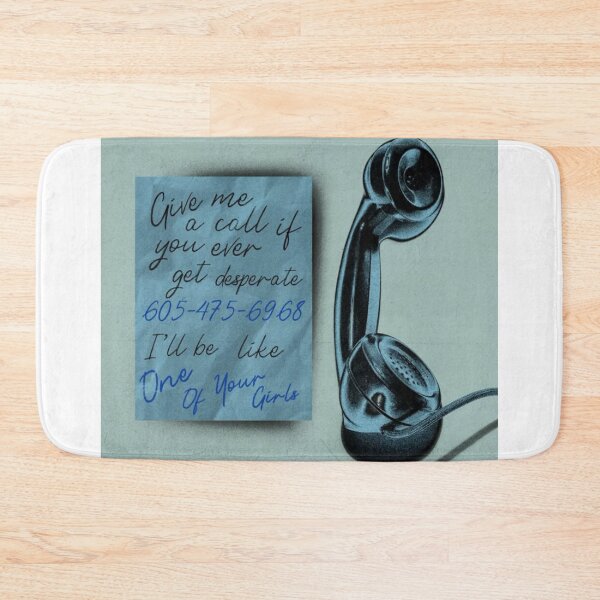 Give me
a call if
you ever
get desperate
605-475-6968
I'll be like
One
Of Your
Girls